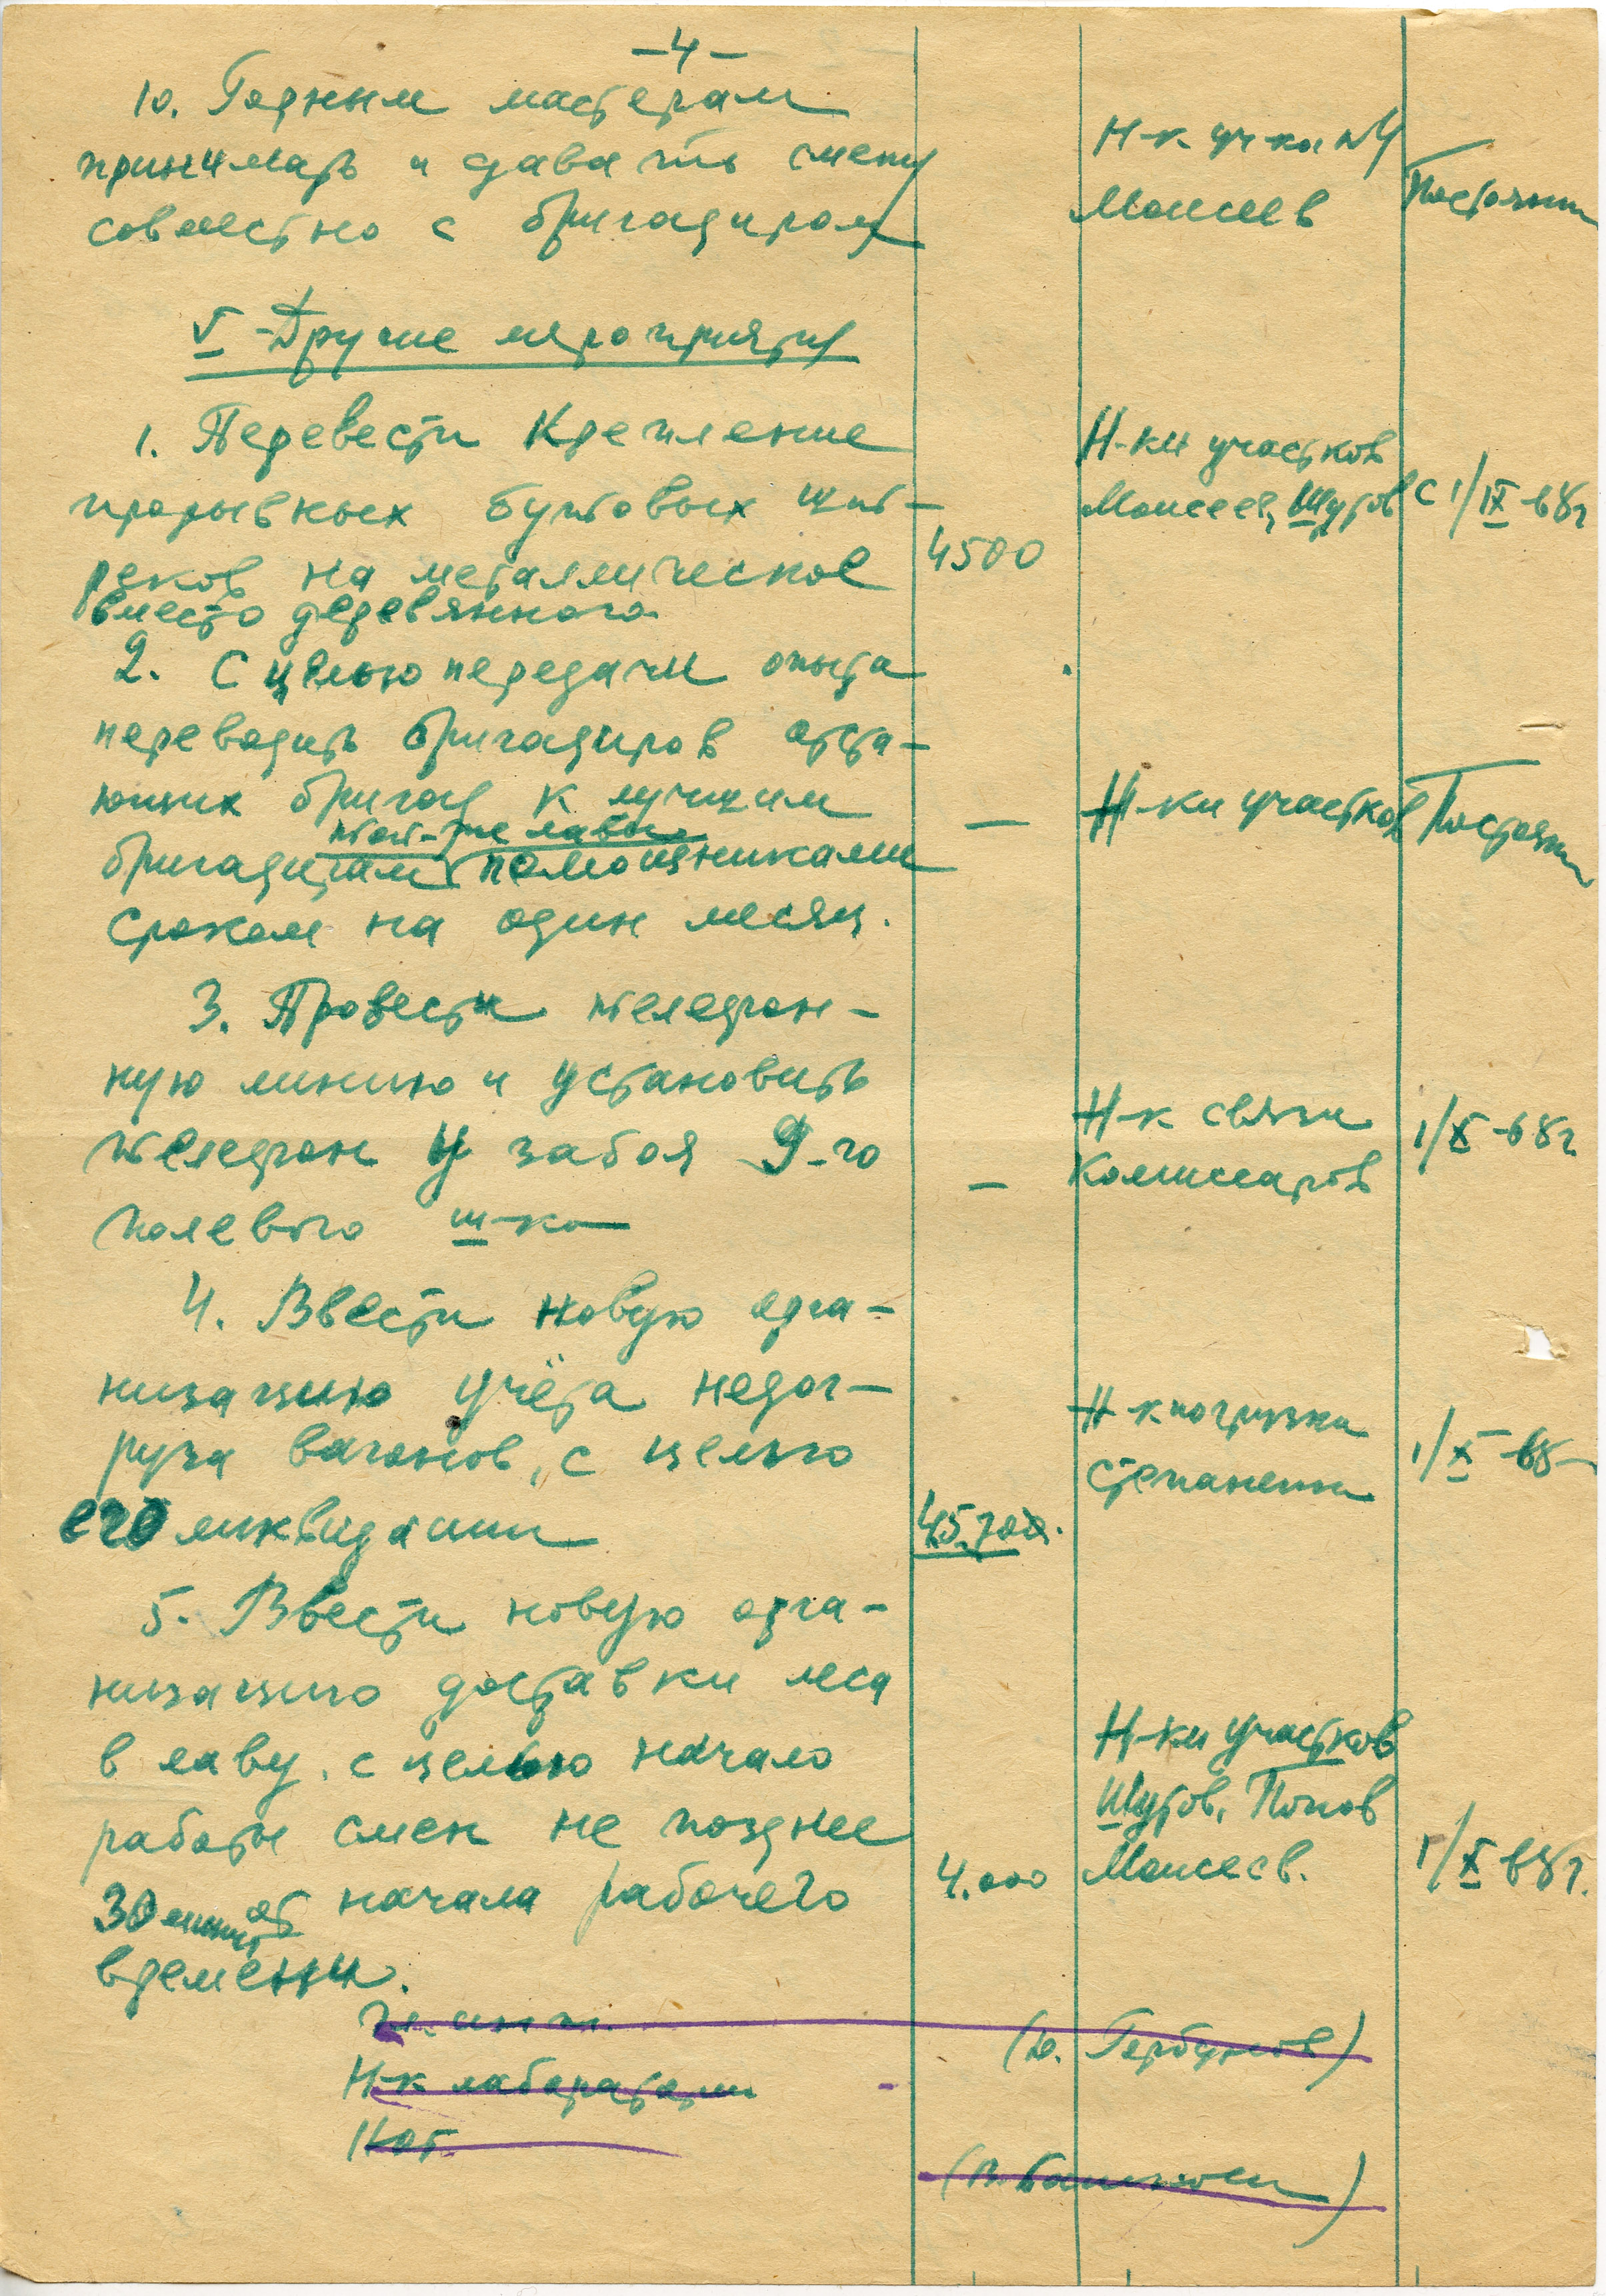 -4-
10. Горным мастерам
принимать и сдавать смену
совместно с бригадиром
Н-к уч-ка №4
Моисеев
Постоянно
V - Другие мероприятия
1. Перевести крепление
прорывных бутовых шт-
реков на металлическое
вместо деревянного
4500
Н-ки участков
Моисеев, Шутов
с 1/IX-68г
2. С целью передачи опыта
переводить бригадиров отста-
ющих бригад к лучшим
той-же лавы
бригадирам помощниками
сроком на один месяц.
—
Н-ки участков
Постоянн
3. Провести телефон-
ную линию и установить
телефон у забоя 9-го
полевого ш-ка
—
Н-к связи
Комиссаров
1/X-68г.
4. Ввести новую орга-
низацию учёта недог-
руза вагонов, с целью
его ликвидации
45.700.
Н-к погрузки
Степаненко
1/X-68-
5. Ввести новую орга-
низацию доставки леса
в лаву, с целью начало
работы смен не позднее
30 минут от начала рабочего
времени.
4.000
Н-ки участков
Шутов, Попов
Моисеев.
1/X-68г.
Гл. инж.
Н-к лаборатории
НОТ